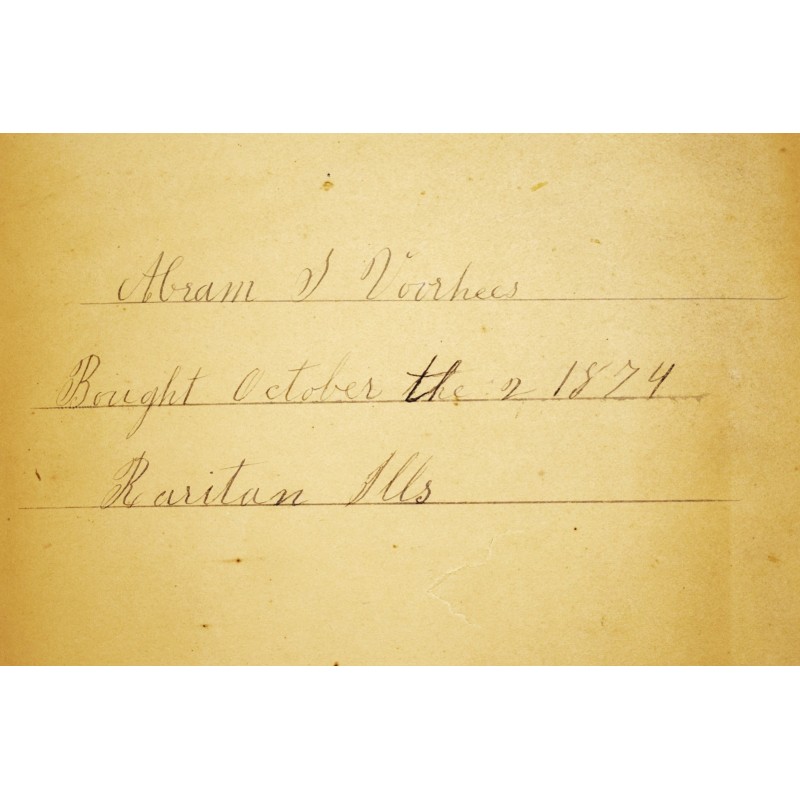 Abram S Voorhees
Bought October the 2 1874
Raritan Ills